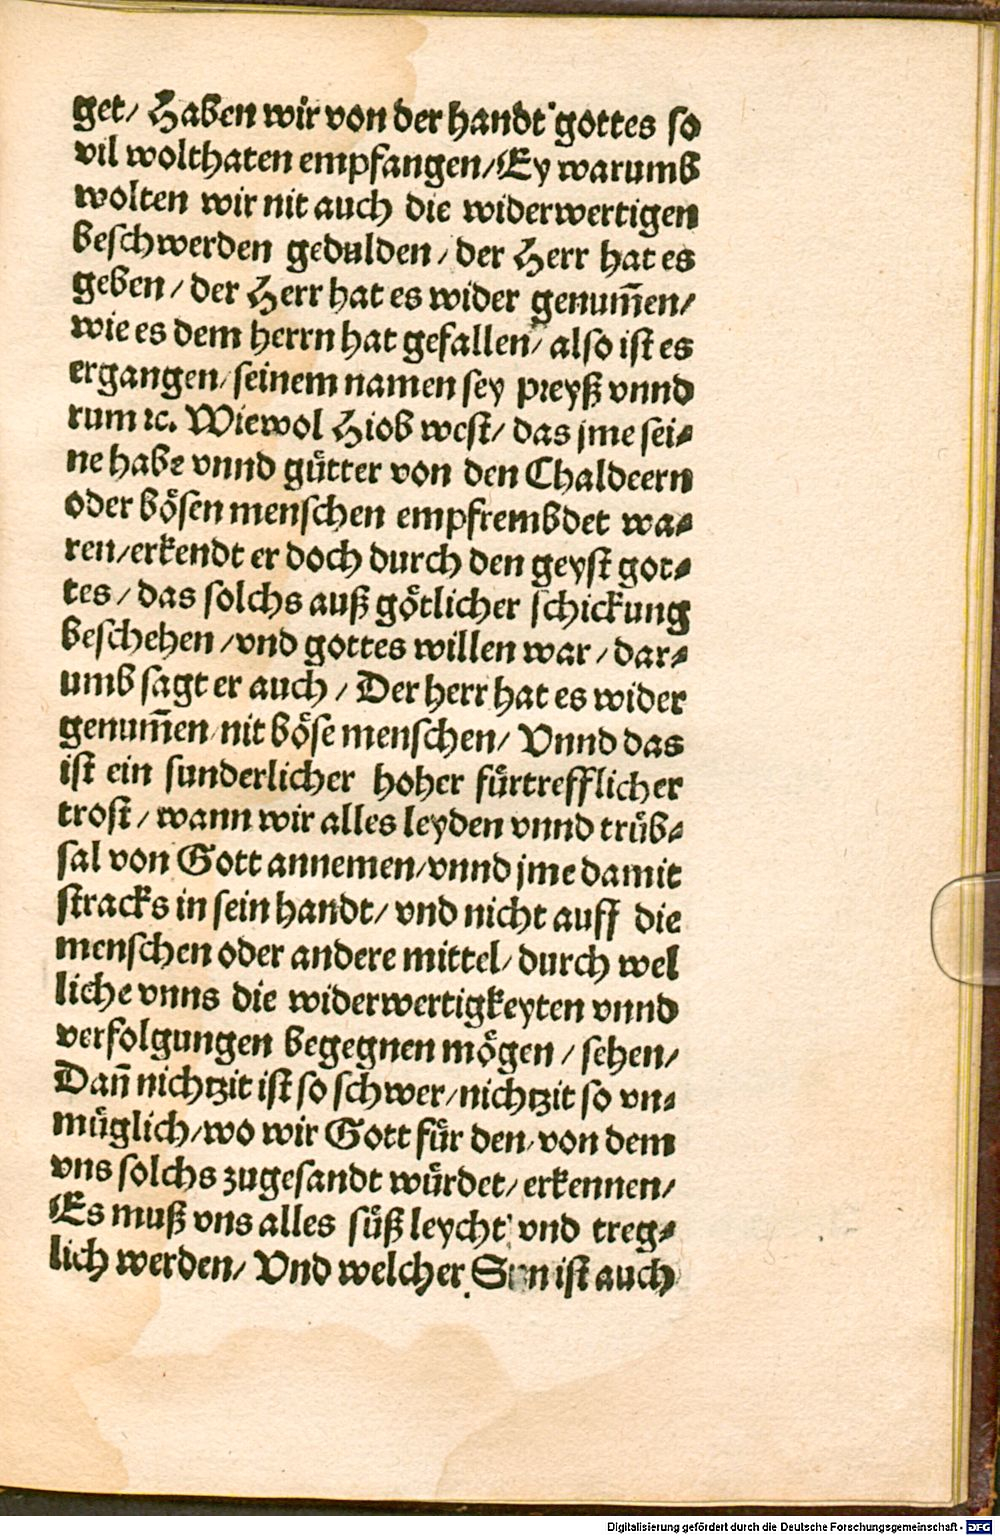 get/ Haben wir von der handt gottes so
vil wolthaten empfangen/ Ey warumb
wolten wir nit auch die widerwertigen
beschwerden gedulden/ der Herr hat es
geben/ der Herr hat es wider genum̄en/
wie es dem herrn hat gefallen/ also ist es
ergangen/ seinem namen sey preyß vnnd
rum ꝛc. Wiewol Hiob west/ das jme sei⸗
ne habe vnnd guͤtter von den Chaldeern
oder boͤsen menschen empfrembdet wa⸗
ren/ erkendt er doch durch den geyst got⸗
tes/ das solchs auß goͤtlicher schickung
beschehen/ vnd gottes willen war/ dar⸗
umb sagt er auch/ Der herr hat es wider
genum̄en/ nit boͤse menschen/ Vnnd das
ist ein sunderlicher hoher fuͤrtrefflicher
trost/ wann wir alles leyden vnnd truͤb⸗
sal von Gott annemen/ vnnd jme damit
stracks in sein handt/ vnd nicht auff die
menschen oder andere mittel/ durch wel
liche vnns die widerwertigkeyten vnnd
verfolgungen begegnen moͤgen/ sehen/
Dan̄ nichtzit ist so schwer/ nichtzit so vn⸗
muͤglich/ wo wir Gott fuͤr den/ von dem
vns solchs zugesandt wuͤrdet/ erkennen/
Es muß vns alles suͤß leycht vnd treg⸗
lich werden/ Vnd welcher Sun ist auch
Digitalisierung gefördert durch die Deutsche Forschungsgemeinschaft - DFG